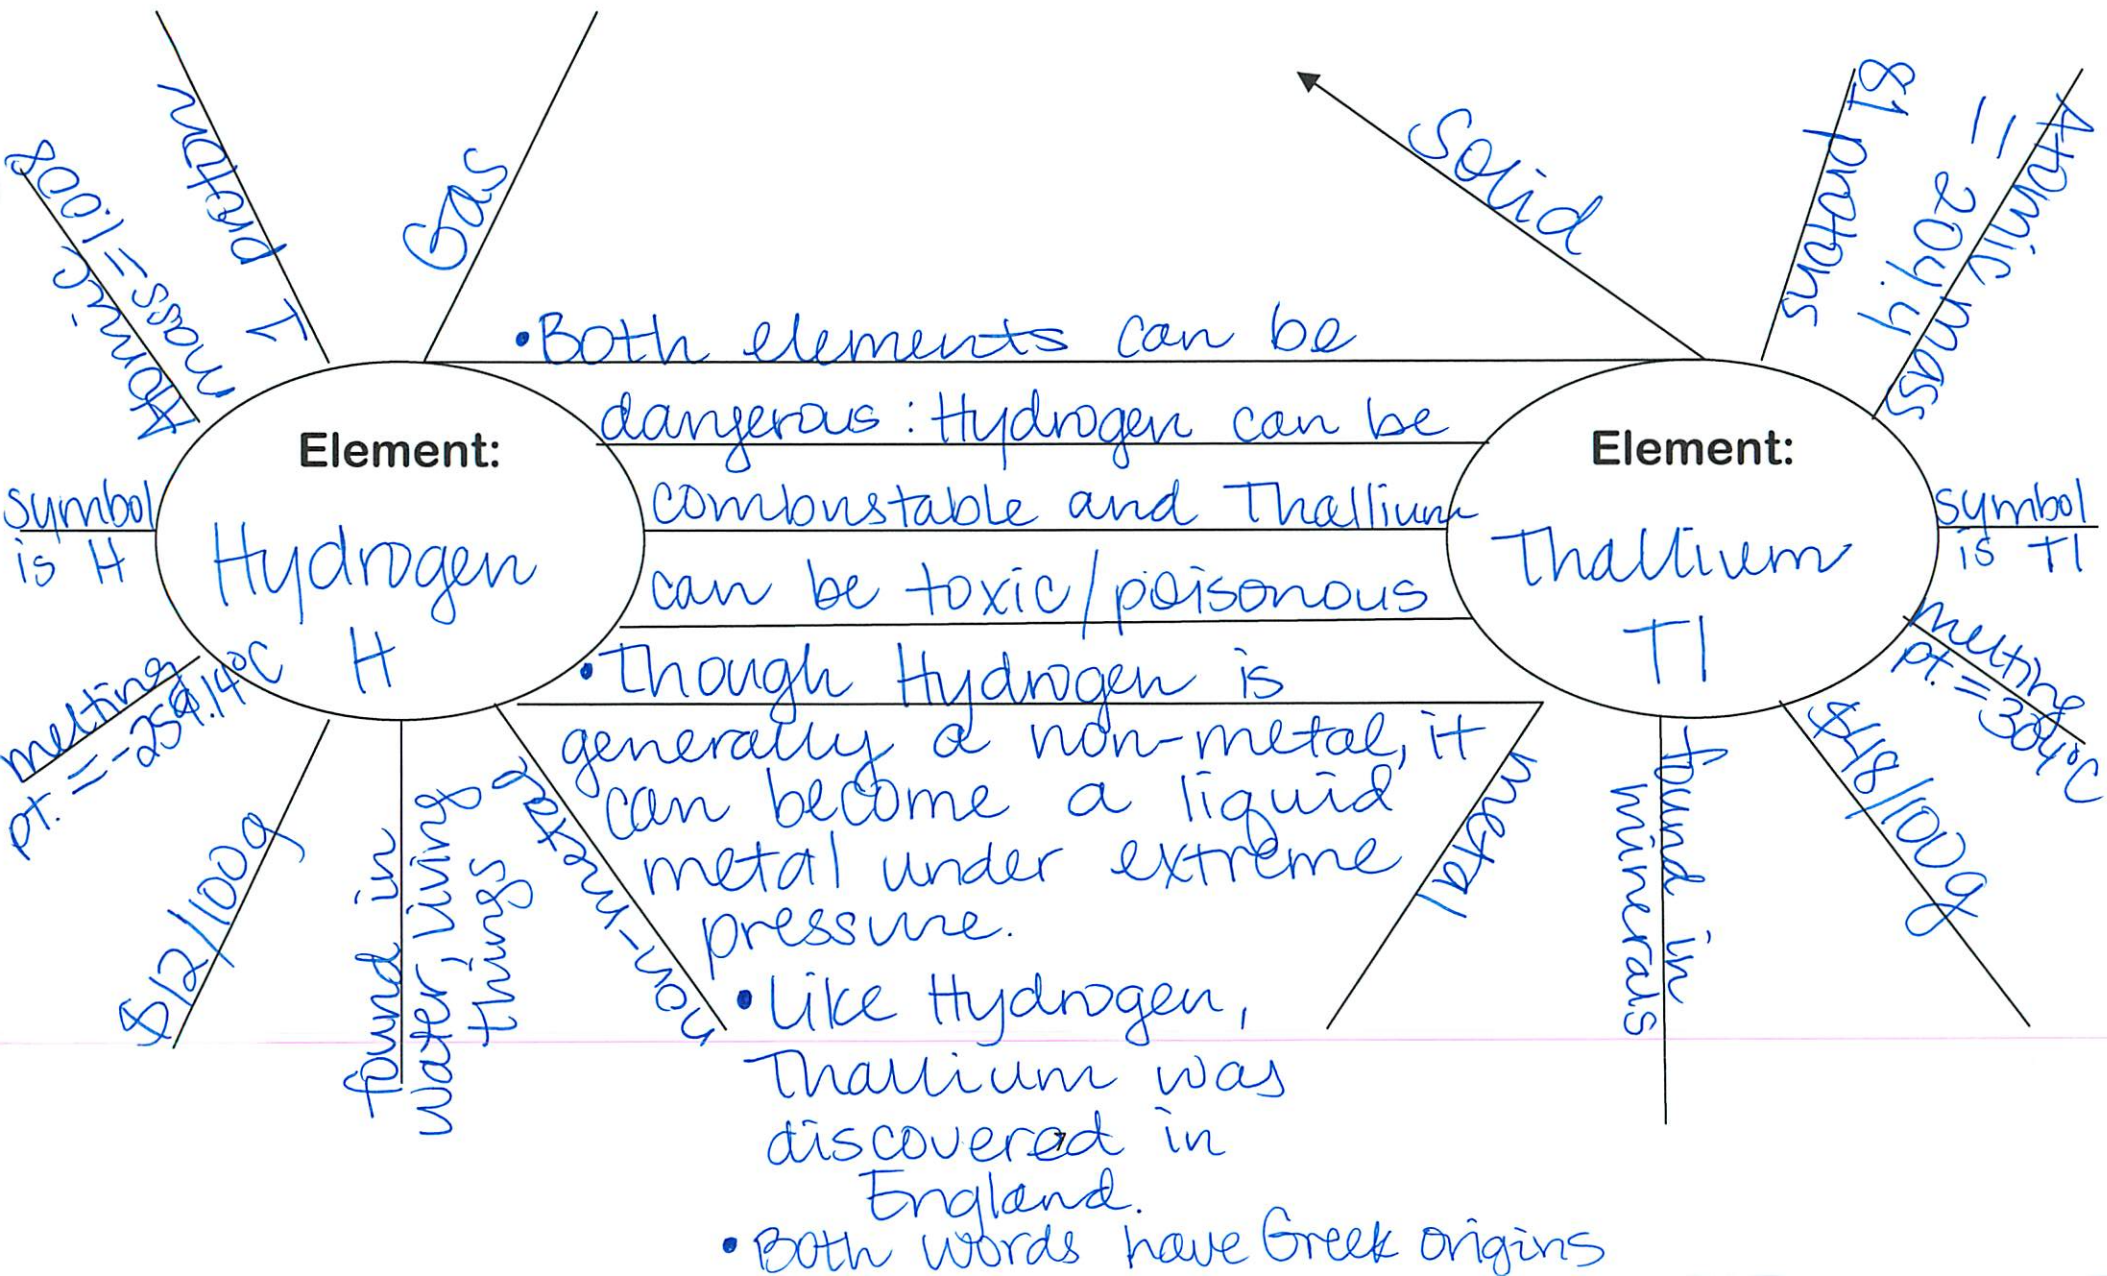 Gas
1 proton
Atomic
mass = 1.008
symbol
is H
melting
pt. = -259.14°C
$12/100g
found in
water, living
things
non-metal
Element:
Hydrogen
H
•Both elements can be
dangerous: Hydrogen can be
combustable and Thallium
can be toxic/poisonous
•Though Hydrogen is
generally a non-metal, it
can become a liquid
metal under extreme
pressure.
•Like Hydrogen,
Thallium was
discovered in
England.
•Both words have Greek origins
Element:
Thallium
Tl
Solid
81 protons
Atomic mass
= 204.4
symbol
is Tl
melting
pt. = 304°C
$48/100g
found in
minerals
metal